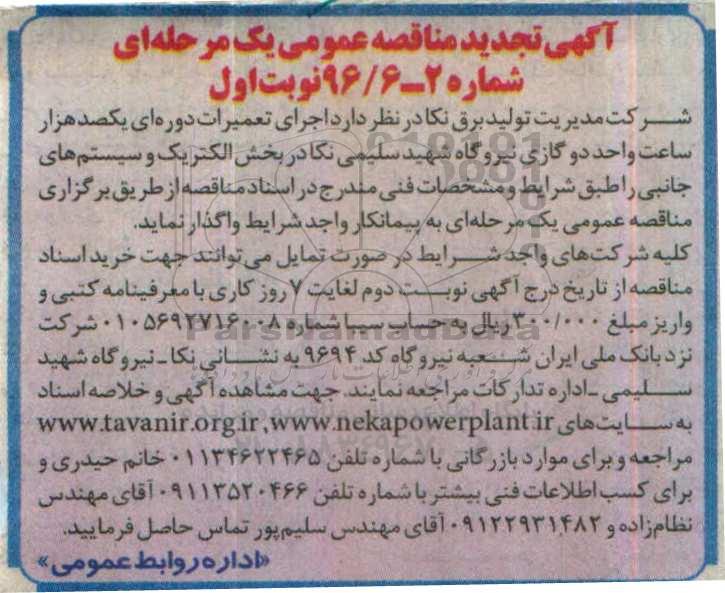 آگهی تجدید مناقصه عمومی یک مرحله‌ای
شماره ۲-۹۶/۶ نوبت اول
شرکت مدیریت تولید برق نکا در نظر دارد اجرای تعمیرات دوره‌ای یکصد هزار
ساعت واحد دو گازی نیروگاه شهید سلیمی نکا در بخش الکتریک و سیستم‌های
جانبی را طبق شرایط و مشخصات فنی مندرج در اسناد مناقصه از طریق برگزاری
مناقصه عمومی یک مرحله‌ای به پیمانکار واجد شرایط واگذار نماید.
کلیه شرکت‌های واجد شرایط در صورت تمایل می‌توانند جهت خرید اسناد
مناقصه از تاریخ درج آگهی نوبت دوم لغایت ۷ روز کاری با معرفینامه کتبی و
واریز مبلغ ۳۰۰/۰۰۰ ریال به حساب سیبا شماره ۰۱۰۵۶۹۲۷۱۶۰۰۸ شرکت
نزد بانک ملی ایران شعبه نیروگاه کد ۹۶۹۴ به نشانی نکا-نیروگاه شهید
سلیمی-اداره تدارکات مراجعه نمایند. جهت مشاهده آگهی و خلاصه اسناد
به سایت‌های www.tavanir.org.ir , www.nekapowerplant.ir
مراجعه و برای موارد بازرگانی با شماره تلفن ۰۱۱۳۴۶۲۲۴۶۵ خانم حیدری و
برای کسب اطلاعات فنی بیشتر با شماره تلفن ۰۹۱۱۳۵۲۰۴۶۶ آقای مهندس
نظام‌زاده و ۰۹۱۲۲۹۳۱۴۸۲ آقای مهندس سلیم‌پور تماس حاصل فرمایید.
«اداره روابط عمومی»
ParsNamadData